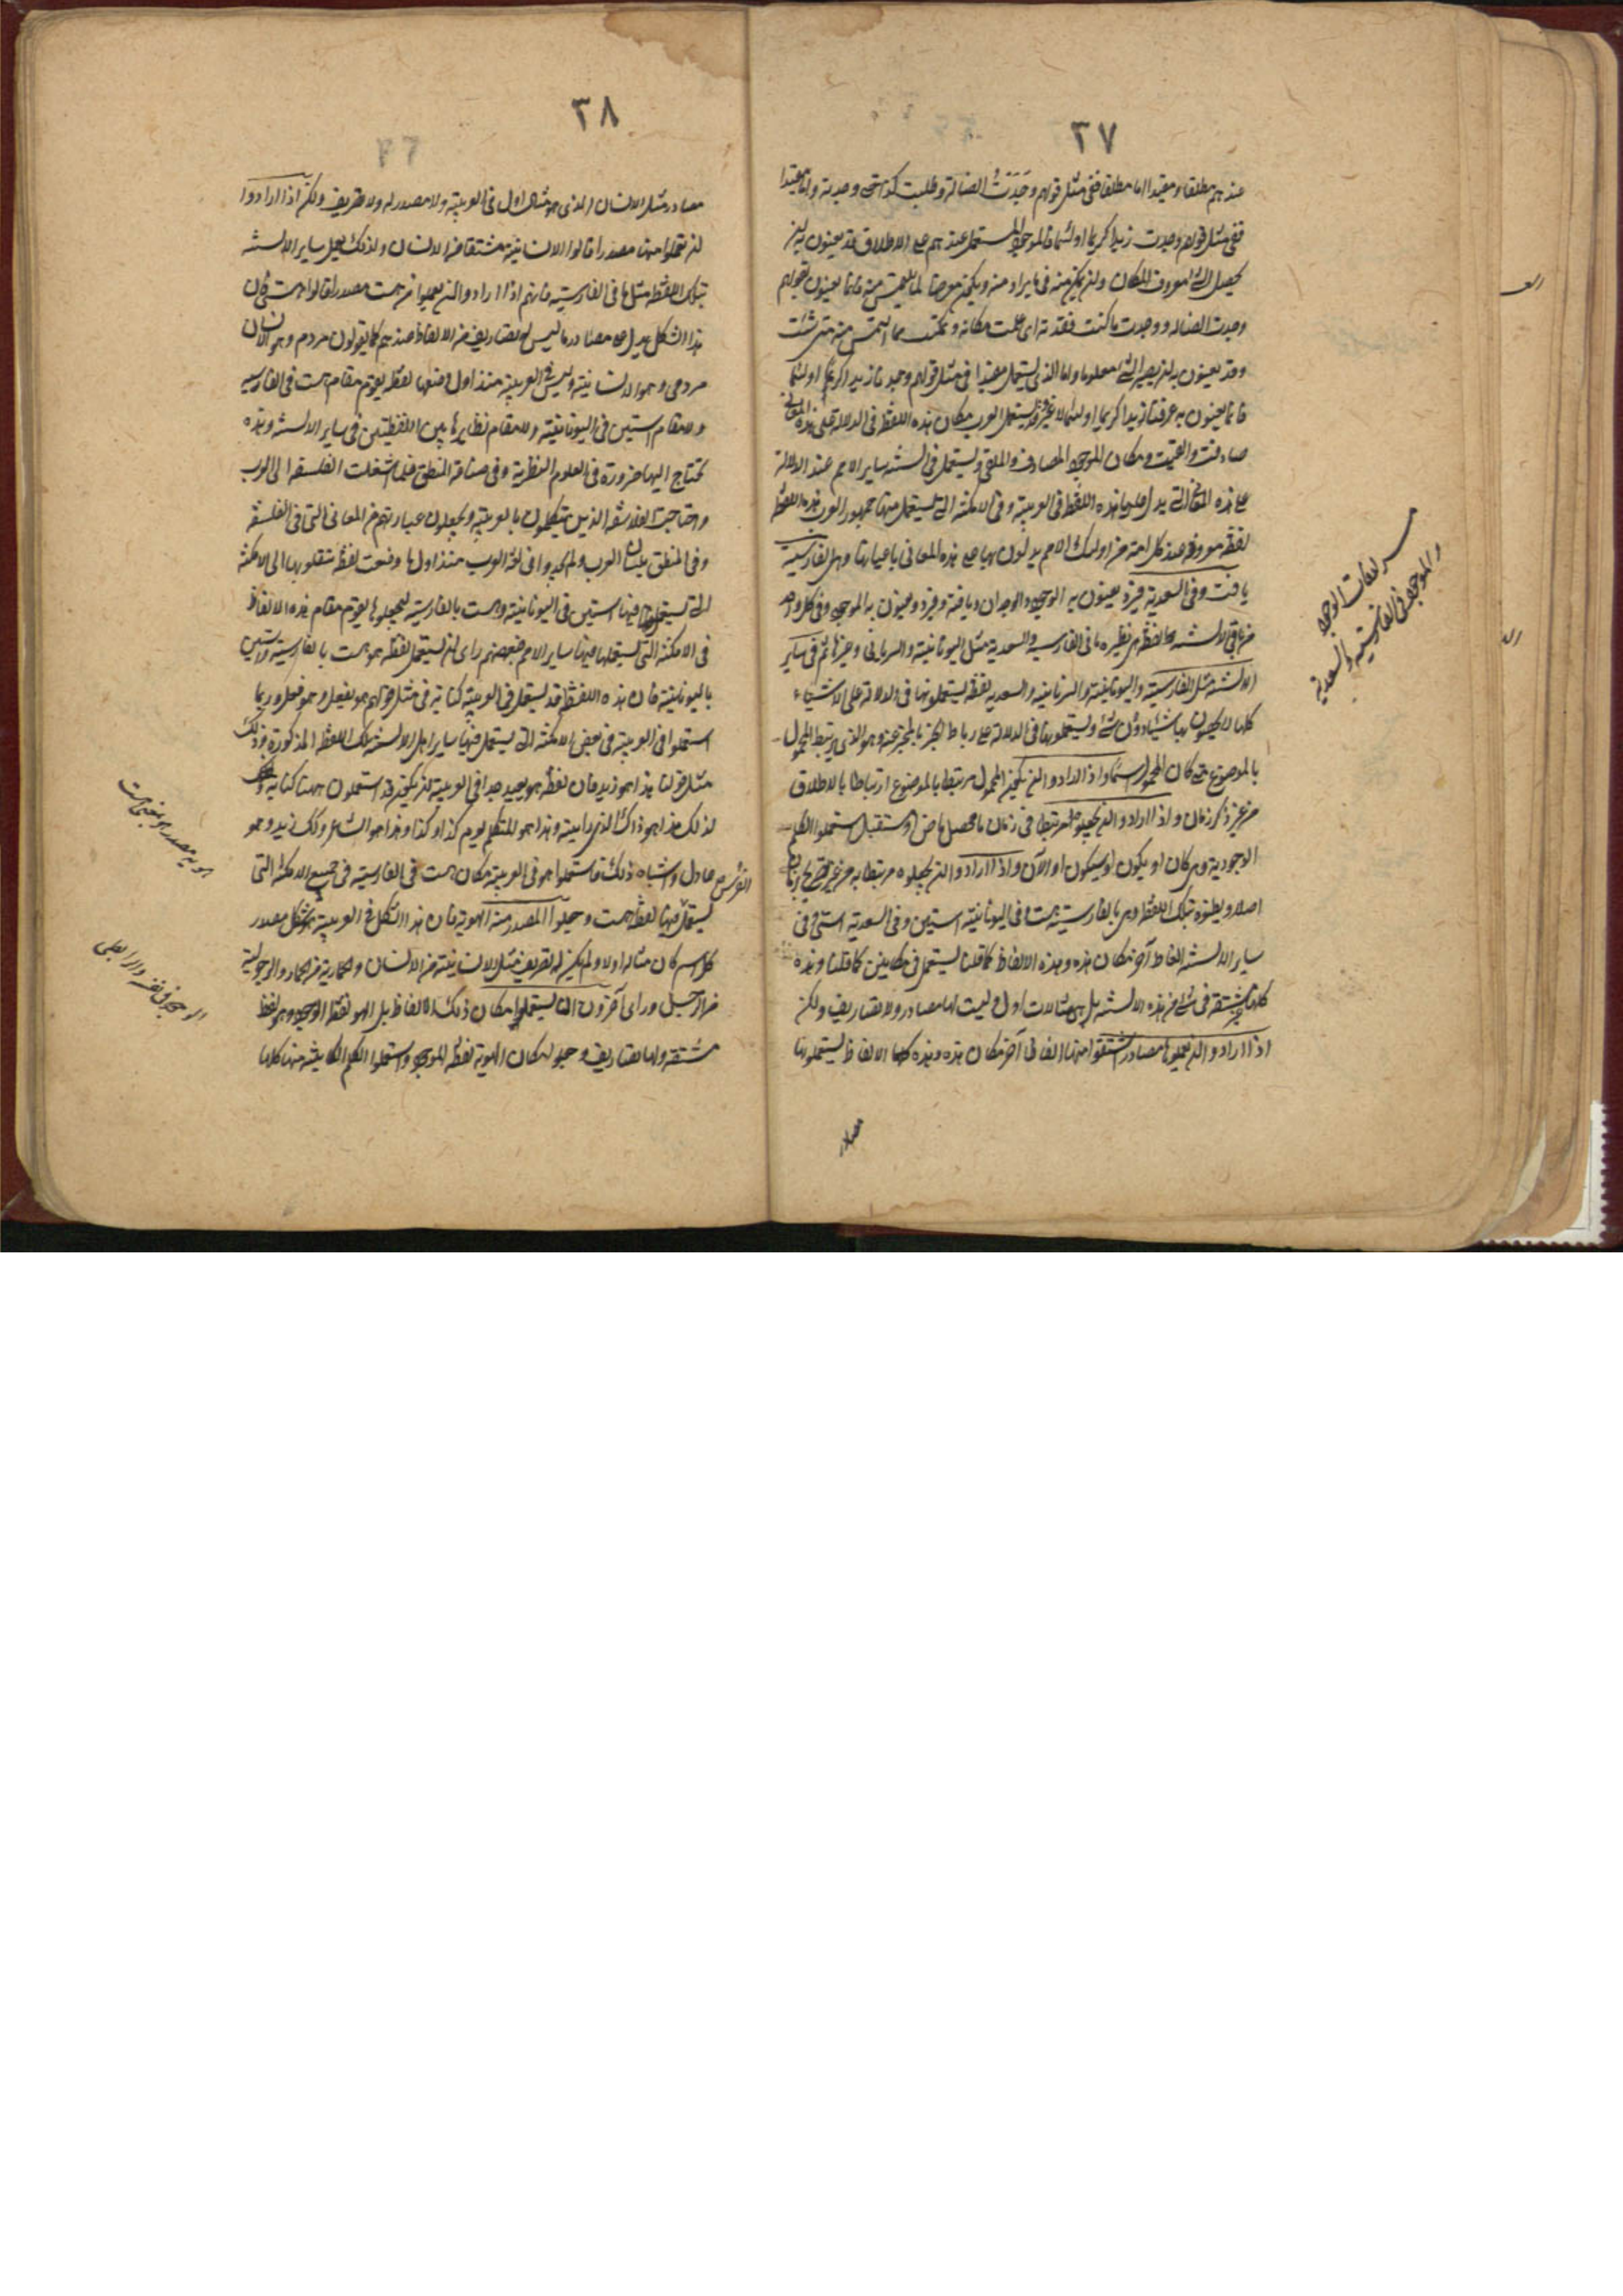 ٣٧
عندهم مطلقا ومقيدا اما مطلقا ففي مثل قولهم وجدت الضالة وطلبت كذا حتى وجدته واما مقيدا
ففي مثل قولهم وجدت زيدا كريما او لئيما فالموجود المستعمل عندهم على الاطلاق قد يعنون به ان
يحصل الشئ معروف المكان وان يتمكن منه في ما يراد منه ويكون معرضا لما يلتمس منه فانما يعنون بقولهم
وجدت الضاله ووجدت ما كنت فقدته اي علمت مكانه وتمكنت مما التمس منه متى شئت
وقد يعنون به ان يصير الشئ معلوما واما الذي يستعمل مقيدا في مثل قولهم وجدت زيدا كريما او لئيما
فانما يعنون به عرفت زيدا كريما او لئيما لا غير وقد يستعمل العرب مكان هذه اللفظة في الدلالة على هذه المعاني
صادفت ولقيت ومكان الموجود المصادف والملقى ويستعمل في السنة ساير الامم عند الدلالة
على هذه المعاني التي يدل عليها بهذه اللفظة في العربية وفي الامكنة التي يستعمل فيها جمهور العرب هذه اللفظة
لفظة معروفة عند كل امة من اولئك الامم يدلون بها على هذه المعاني باعيانها وهي بالفارسية
يافت وفي السعدية فيرد يعنون به الوجود والوجدان ويافته وفيردو يعنون به الموجود وفي كل واحد
من باقي الالسنة لفظة نظيره ما في الفارسية والسعدية مثل اليونانية والسريانية وغيرها ثم في ساير
الالسنة مثل الفارسية واليونانية والسريانية والسعدية لفظة يستعملونها في الدلالة على الاشياء
كلها لا يخصون بها شيئا دون شئ ويستعملونها في الدلالة على رباط الخبر بالمخبر عنه وهو الذي يربط المحمول
بالموضوع متى كان المحمول اسما واذا ارادوا ان يكون المحمول مرتبطا بالموضوع ارتباطا بالاطلاق
من غير ذكر زمان واذا ارادوا ان يجعلوه مرتبطا في زمان محصل ماض او مستقبل استعملوا الكلم
الوجودية وهي كان او يكون او سيكون او الآن واذا ارادوا ان يجعلوه مرتبطا به من غير تصريح بزمان
اصلا ويطلقوه بتلك اللفظة وهي بالفارسية هست وفي اليونانية استين وفي السعدية استي وفي
ساير الالسنة الفاظ آخر مكان هذه وهذه الالفاظ كما قلنا يستعمل في مكانين كما قلنا وهذه
كلها غير مشتقة في شئ من هذه الالسنة بل هي مثالات اول وليست لها مصادر ولا تصاريف ولكن
اذا ارادوا ان يعملوا مصادر اشتقوا منها الفاظا آخر مكان هذه وهذه كلها الالفاظ يستعملونها
مصادر
لغات الوجود
والموجود في الفارسية والسعدية
٣٨
مصادر مثل الانسان الذي هو مثال اول في العربية ولا مصدر له ولا تصريف ولكن اذا ارادوا
ان يعملوا منها مصدرا قالوا الانسانية مشتقا من الانسان وكذلك يعمل ساير الالسنة
بتلك اللفظة مثل ما في الفارسية فانهم اذا ارادوا ان يعملوا من هست مصدرا قالوا هستي فان
هذا الشكل يدل على مصادر ما ليس له تصاريف من الالفاظ عندهم كما يقولون مردم وهو الانسان
مردمي وهو الانسانية وليس في العربية منذ اول وضعها لفظة يقوم مقام هست في الفارسية
ولا مقام استين في اليونانية ولا مقام نظاير هاتين اللفظتين في ساير الالسنة وهذه
يحتاج اليها ضرورة في العلوم النظرية وفي صناعة المنطق فلما انتقلت الفلسفة الى العرب
واحتاجت الفلاسفة الذين يتكلمون بالعربية ويجعلون عبارتهم عن المعاني التي في الفلسفة
وفي المنطق بلسان العرب ولم يجدوا في لغة العرب منذ اول ما وضعت لفظة ينقلون بها الى الامكنة
التي يستعمل فيها استين في اليونانية وهست بالفارسية فيجعلوها يقوم مقام هذه الالفاظ
في الامكنة التي يستعملها فيها ساير الامم فبعضهم راى ان يستعمل لفظة هو مكان هست بالفارسية واستين
باليونانية فان هذه اللفظة قد يستعمل في العربية كناية في مثل قولهم هو يفعل وهو فعل وربما
استعملوا في العربية في بعض الامكنة التي يستعمل فيها ساير اهل الالسنة تلك اللفظة المذكورة وذلك
مثل قولنا هذا هو زيد فان لفظة هو بعيد جدا في العربية ان يكون قد استعملوه ههنا كناية
كذلك هذا هو ذاك الذي رايته وهذا هو المتكلم يوم كذا وكذا وهذا هو الشاعر وكذلك زيد هو
عادل واشباه ذلك فاستعملوا هو في العربية مكان هست في الفارسية في جميع الامكنة التي
يستعمل فيها لفظة هست وجعلوا المصدر منه الهوية فان هذا الشكل في العربية هو شكل مصدر
كل اسم كان مثالا اولا ولم يكن له تصريف مثل الانسانية من الانسان والحمارية من الحمار والرجولية
من الرجل وراى آخرون ان يستعملوا مكان تلك الالفاظ بدل الهو لفظة الموجود وهو لفظ
مشتقة ولها تصاريف وجعلوا مكان الهوية لفظة الوجود واستعملوا الكلم الكاينة منها كلما
الهوية مصدر هو بمعنى هست